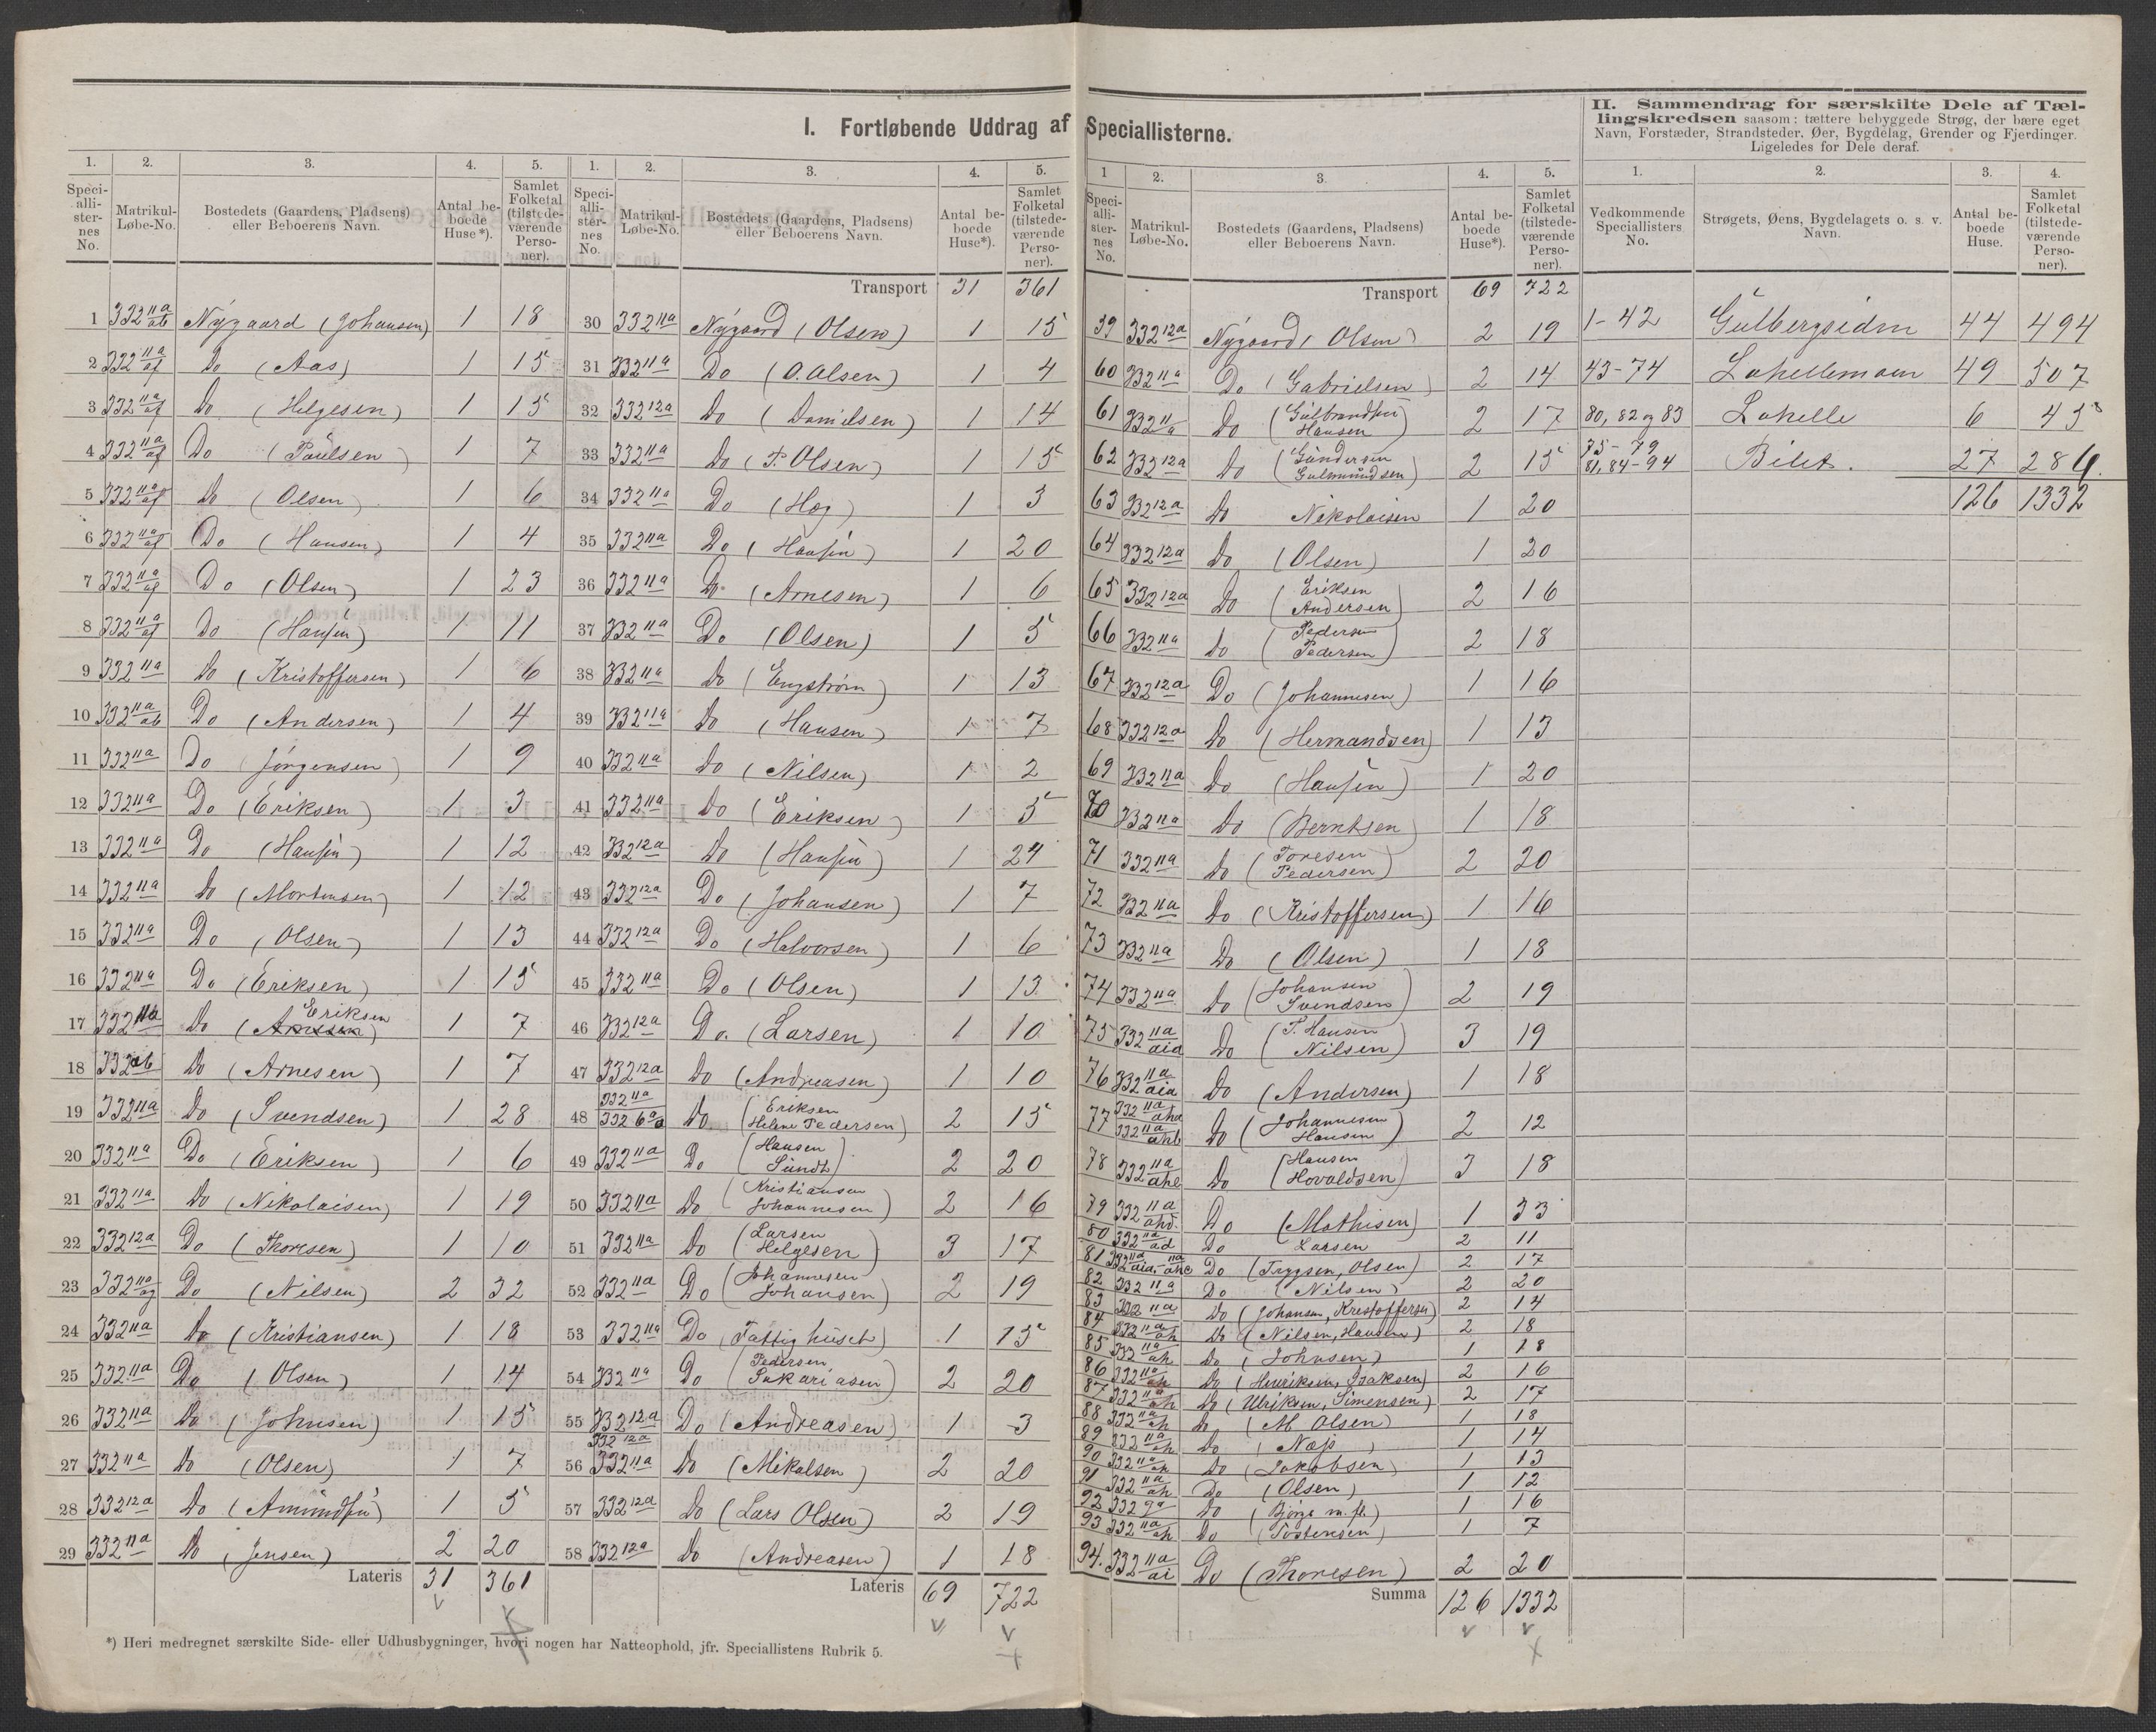 I. Fortløbende Uddrag af Speciallisterne.
II. Sammendrag for særskilte Dele af Tæl-
lingskredsen saasom: tættere bebyggede Strøg, der bære eget
Navn, Forstæder, Strandsteder, Øer, Bygdelag, Grender og Fjerdinger.
Ligeledes for Dele deraf.
1. 2. 3. 4. 5.
Speciallisternes No. Matrikul-Løbe-No. Bostedets (Gaardens, Pladsens) eller Beboerens Navn. Antal beboede Huse*). Samlet Folketal (tilstedeværende Personer).
1 332 11a/ab Nygaard (Johansen) 1 18
2 332 11a/af Do (Aas) 1 15
3 332 11a/af Do (Helgesen) 1 15
4 332 11a/af Do (Paulsen) 1 7
5 332 11a/af Do (Olsen) 1 6
6 332 11a/af Do (Hansen) 1 4
7 332 11a/af Do (Olsen) 1 23
8 332 11a/af Do (Hansen) 1 11
9 332 11a Do (Kristoffersen) 1 6
10 332 11a/ab Do (Andersen) 1 4
11 332 11a Do (Jørgensen) 1 9
12 332 11a Do (Eriksen) 1 3
13 332 11a Do (Hansen) 1 12
14 332 11a Do (Mortensen) 1 12
15 332 11a Do (Olsen) 1 13
16 332 11a Do (Eriksen) 1 15
17 332 Do (Eriksen) 1 7
18 332 ab Do (Arnesen) 1 7
19 332 11a Do (Svendsen) 1 28
20 332 11a Do (Eriksen) 1 6
21 332 11a Do (Nikolaisen) 1 19
22 332 12a Do (Thoresen) 1 10
23 332 11a/ag Do (Nilsen) 2 32
24 332 11a Do (Kristiansen) 1 18
25 332 11a Do (Olsen) 1 14
26 332 11a Do (Johnsen) 1 15
27 332 11a Do (Olsen) 1 7
28 332 12a Do (Amundsen) 1 5
29 332 11a Do (Jensen) 2 20
Lateris 31 361
1. 2. 3. 4. 5.
Speciallisternes No. Matrikul-Løbe-No. Bostedets (Gaardens, Pladsens) eller Beboerens Navn. Antal beboede Huse*). Samlet Folketal (tilstedeværende Personer).
Transport 31 361
30 332 11a Nygaard (Olsen) 1 15
31 332 11a Do (O. Olsen) 1 4
32 332 12a Do (Danielsen) 1 14
33 332 11a Do (P. Olsen) 1 15
34 332 11a Do (Høg) 1 3
35 332 11a Do (Hansen) 1 20
36 332 11a Do (Arnesen) 1 6
37 332 11a Do (Olsen) 1 5
38 332 11a Do (Engstrøm) 1 13
39 332 11a Do (Hansen) 1 7
40 332 11a Do (Nilsen) 1 2
41 332 11a Do (Eriksen) 1 5
42 332 12a Do (Hansen) 1 24
43 332 12a Do (Johansen) 1 7
44 332 12a Do (Halvorsen) 1 6
45 332 11a Do (Olsen) 1 13
46 332 12a Do. (Larsen) 1 10
47 332 12a Do (Andreasen) 1 10
48 332 11a 332 6a Do (Eriksen Helene Pedersen) 2 15
49 332 11a Do (Hansen Sundt) 2 20
50 332 11a Do (Kristiansen Johannesen) 2 16
51 332 11a Do (Larsen Helgesen) 3 17
52 332 11a Do (Johannesen Johansen) 2 19
53 332 11a Do (Fattighuset) 1 15
54 332 11a Do (Pedersen Sakariasen) 2 20
55 332 12a Do (Andreasen) 1 3
56 332 12a 332 11a Do (Mikalsen) 2 20
57 332 12a Do (Lars Olsen) 2 19
58 332 12a Do (Andreasen) 1 18
Lateris 69 722
*) Heri medregnet særskilte Side- eller Udhusbygninger, hvori nogen har Natteophold, jfr. Speciallistens Rubrik 5.
1 2. 3. 4. 5.
Speciallisternes No. Matrikul-Løbe-No. Bostedets (Gaardens, Pladsens) eller Beboerens Navn. Antal beboede Huse*). Samlet Folketal (tilstedeværende Personer).
Transport 69 722
59 332 12a Nygaard (Olsen) 2 19
60 332 11a Do (Gabrielsen) 2 14
61 332 11a Do (Gulbrandsen Hansen) 2 17
62 332 12a Do (Gundersen Gulmundsen) 2 15
63 332 12a Do Nikolaisen 1 20
64 332 12a Do (Olsen) 1 20
65 332 12a Do (Eriksen Andersen) 2 16
66 332 11a Do (Pedersen Pedersen) 2 18
67 332 12a Do (Johannesen) 1 16
68 332 12a Do (Hermandsen) 1 13
69 332 11a Do (Hansen) 1 20
70 332 11a Do (Berntsen) 1 18
71 332 11a Do (Toresen Pedersen) 2 20
72 332 11a Do (Kristoffersen) 1 16
73 332 11a Do (Olsen) 1 18
74 332 11a Do (Johansen Svendsen) 2 19
75 332 11a/aia Do (P. Hansen Nilsen) 3 19
76 332 11a/aia Do (Andersen) 1 18
77 332 11a/aha 332 11a/ahb Do (Johannesen Hansen) 2 12
78 332 11a/ahe Do (Hansen Hovaldsen) 3 18
79 332 11a/ahd. Do (Mathisen) 1 33
80 332 11a/ad Do Larsen 2 11
81 332 11a/aia, 11a/ahc Do (Trygsen, Olsen) 2 17
82 332 11a Do (Nilsen) 2 20
83 332 11a Do (Johansen, Kristoffersen) 2 14
84 332 11a/ah Do (Nilsen, Hansen) 2 18
85 332 11a/ah Do (Johnsen) 1 18
86 332 11a/ah Do (Henriksen, Isaksen) 2 16
87 332 11a/ah Do (Ulriksen, Simensen) 2 17
88 332 11a/ah Do (M Olsen) 1 18
89 332 11a/ah Do ( ) 1 14
90 332 11a/ah Do (Jakobsen) 1 13
91 332 11a/ah Do (Olsen) 1 12
92 332 9a Do ( m. fl.) 1 16
93 332 11a/ah Do (Tostensen) 1 7
94. 332 11a/ai Do (Thoresen) 2 20
Summa 126 1332
1. 2. 3. 4.
Vedkommende Speciallisters No. Strøgets, Øens, Bygdelagets o. s. v. Navn. Antal beboede Huse. Samlet Folketal (tilstedeværende Personer).
1-42 Gulbergsiden 44 494
43-74 Lahellemoen 49 507
80, 82 og 83 Lahelle 6 45
75-79 81, 84-94 Bilet. 27 286.
126 1332